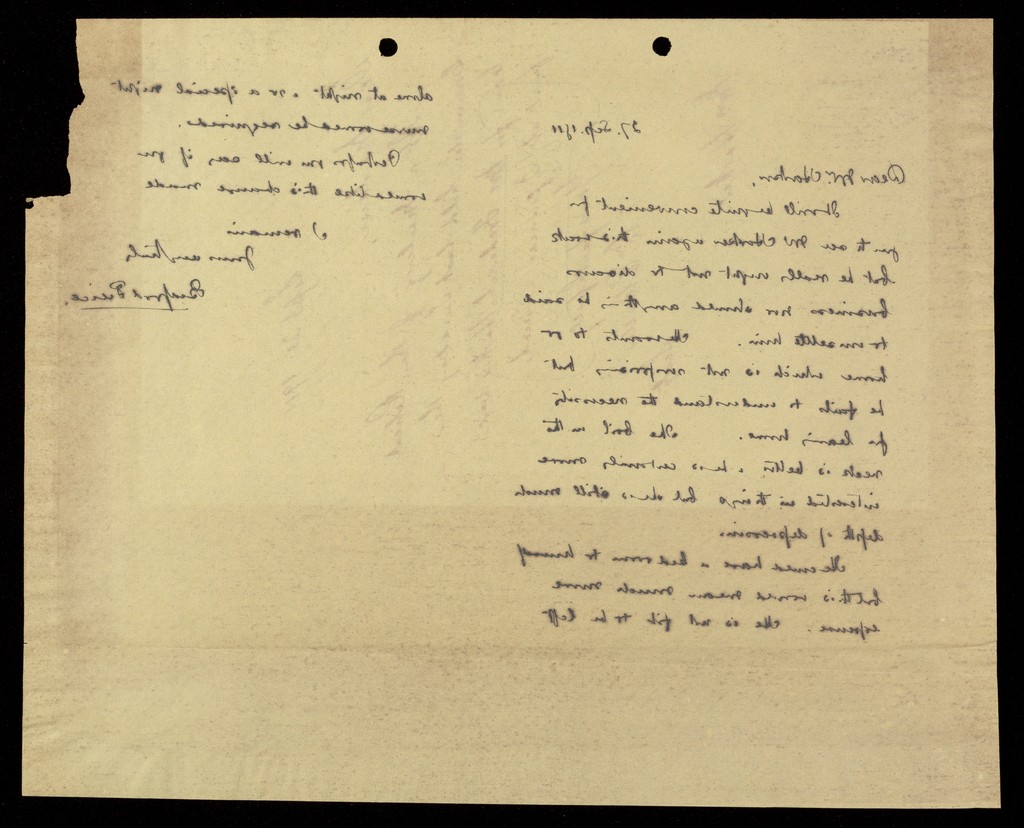 27. Sep. 1911
Dear Mr. Hooker,
It will be quite convenient for
you to see Mr Hooker again this week
but he really ought not to discuss
business nor should anything be said
to unsettle him. He wants to go
home which is not surprising but
he fails to understand the necessity
for leaving home. The boil on the
neck is better & he is certainly more
interested in things but she is still much
depth of depression.
He could have a bedroom to himself
but this would mean much more
expense. He is not fit to be left
alone at night & so a special night
nurse would be required.
Perhaps you will say if you
would like this change made
I remain
Yours very truly
Bedford Pierce.